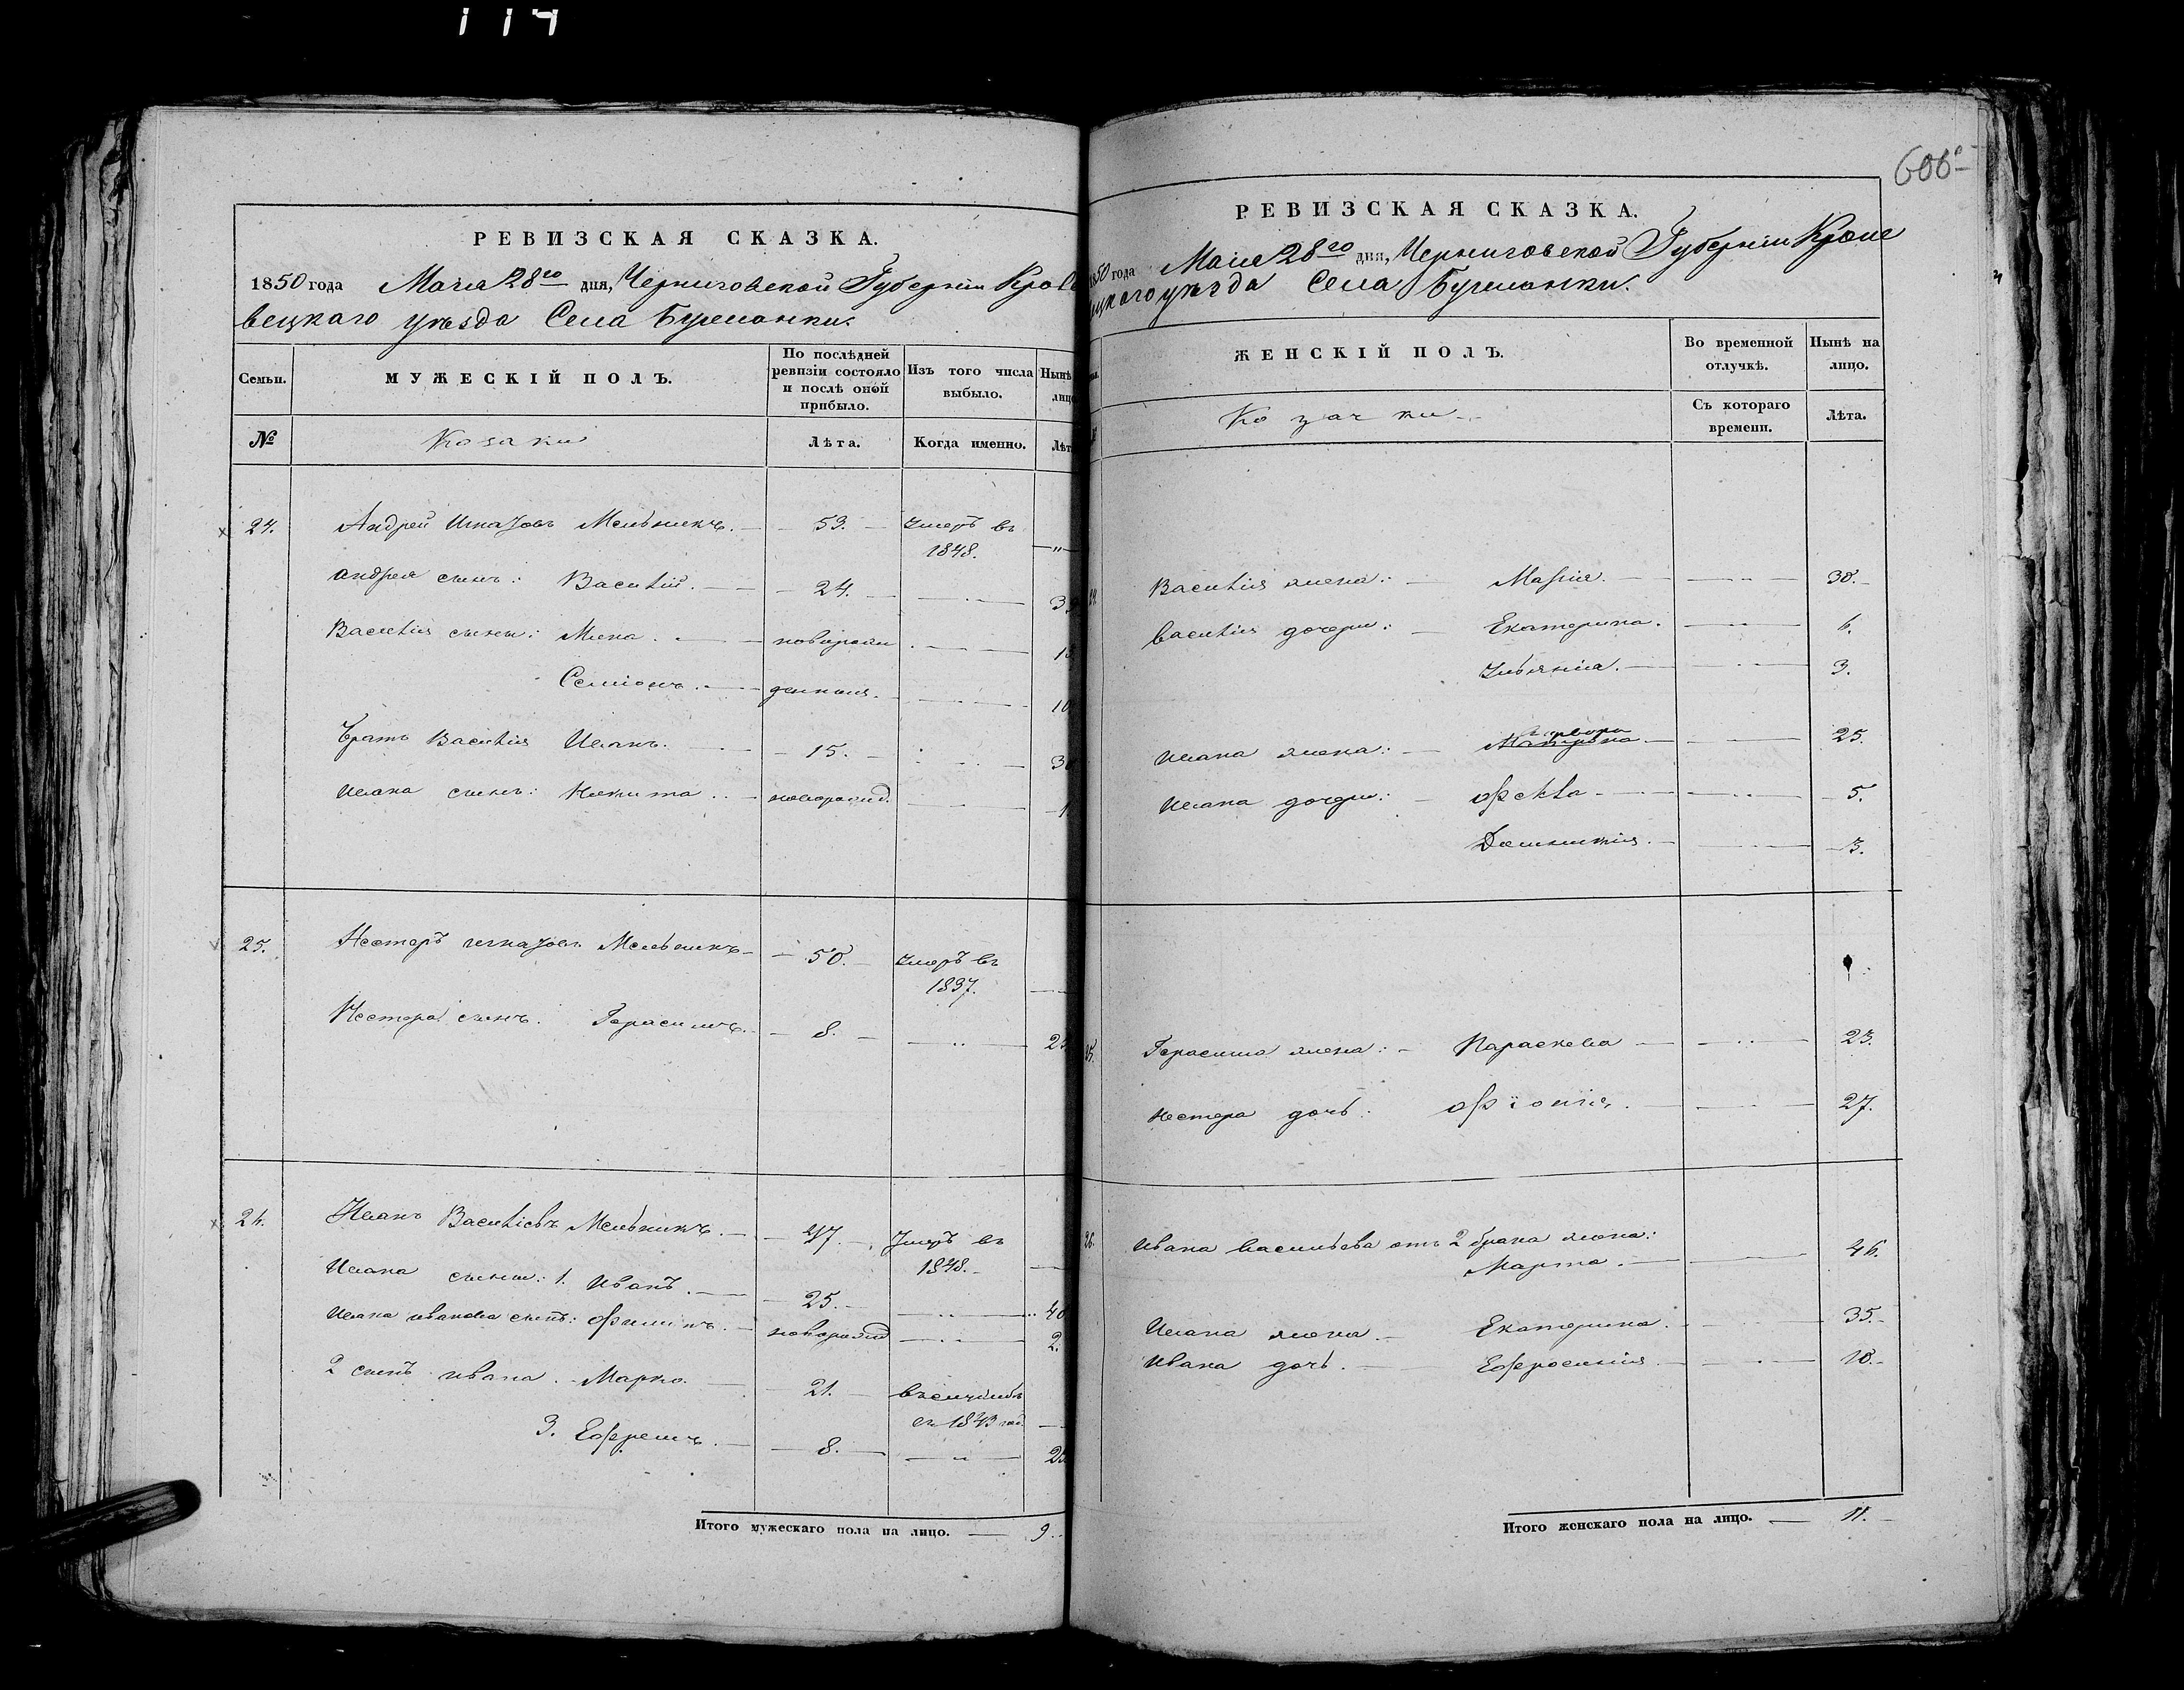 114
РЕВИЗСКАЯ СКАЗКА.
1850 года Маія 28го дня, Черниговской Губерніи Кроле
вецкаго уѣзда Села
Семьи. МУЖЕСКІЙ ПОЛЪ. По послѣдней ревизіи состояло и послѣ оной прибыло. Изъ того числа выбыло. Нынѣ лицо
№ Козаки Лѣта. Когда именно. Лѣт
24. Андрей Мельникъ. 53. умеръ въ
1848.
Андрея сынъ: Василій. 24.
Василія сыны: Мина. новорож
Семіонъ. денныя.
братъ Василія Иванъ. 15.
Ивана сынъ: Никита новорожд.
25. Нестеръ Мельникъ 50. умеръ въ
1837.
Нестера сынъ. Герасимъ. 8.
26. Иванъ Васильевъ Мельникъ. 47. умеръ въ
1848.
Ивана сыны: 1. Иванъ. 25. 40
Ивана Иванова сынъ: новорожд 2.
2 сынъ Ивана. Марко. 21.
1843 год
3. Ефремъ. 8.
Итого мужескаго пола на лицо. 9.
606
РЕВИЗСКАЯ СКАЗКА.
1850 года Маія 28го дня, Черниговской Губерніи Кроле
вецкаго уѣзда Села
ЖЕНСКІЙ ПОЛЪ. Во временной отлучкѣ. Нынѣ на лицо.
Козачки Съ котораго времени. Лѣта.
Василія жена: Марія. 30.
Василія дочери: Екатерина. 6.
Ульянія. 3.
Ивана жена: Варвара 25.
Ивана дочери: 5.
3.
25. Герасима жена: Параскева 23.
Нестера дочь: 27.
26. Ивана Васильева отъ 2 брака жена:
Марта. 46.
Ивана жена. Екатерина. 35.
Ивана дочь. Ефросинія. 10.
Итого женскаго пола на лицо. 11.